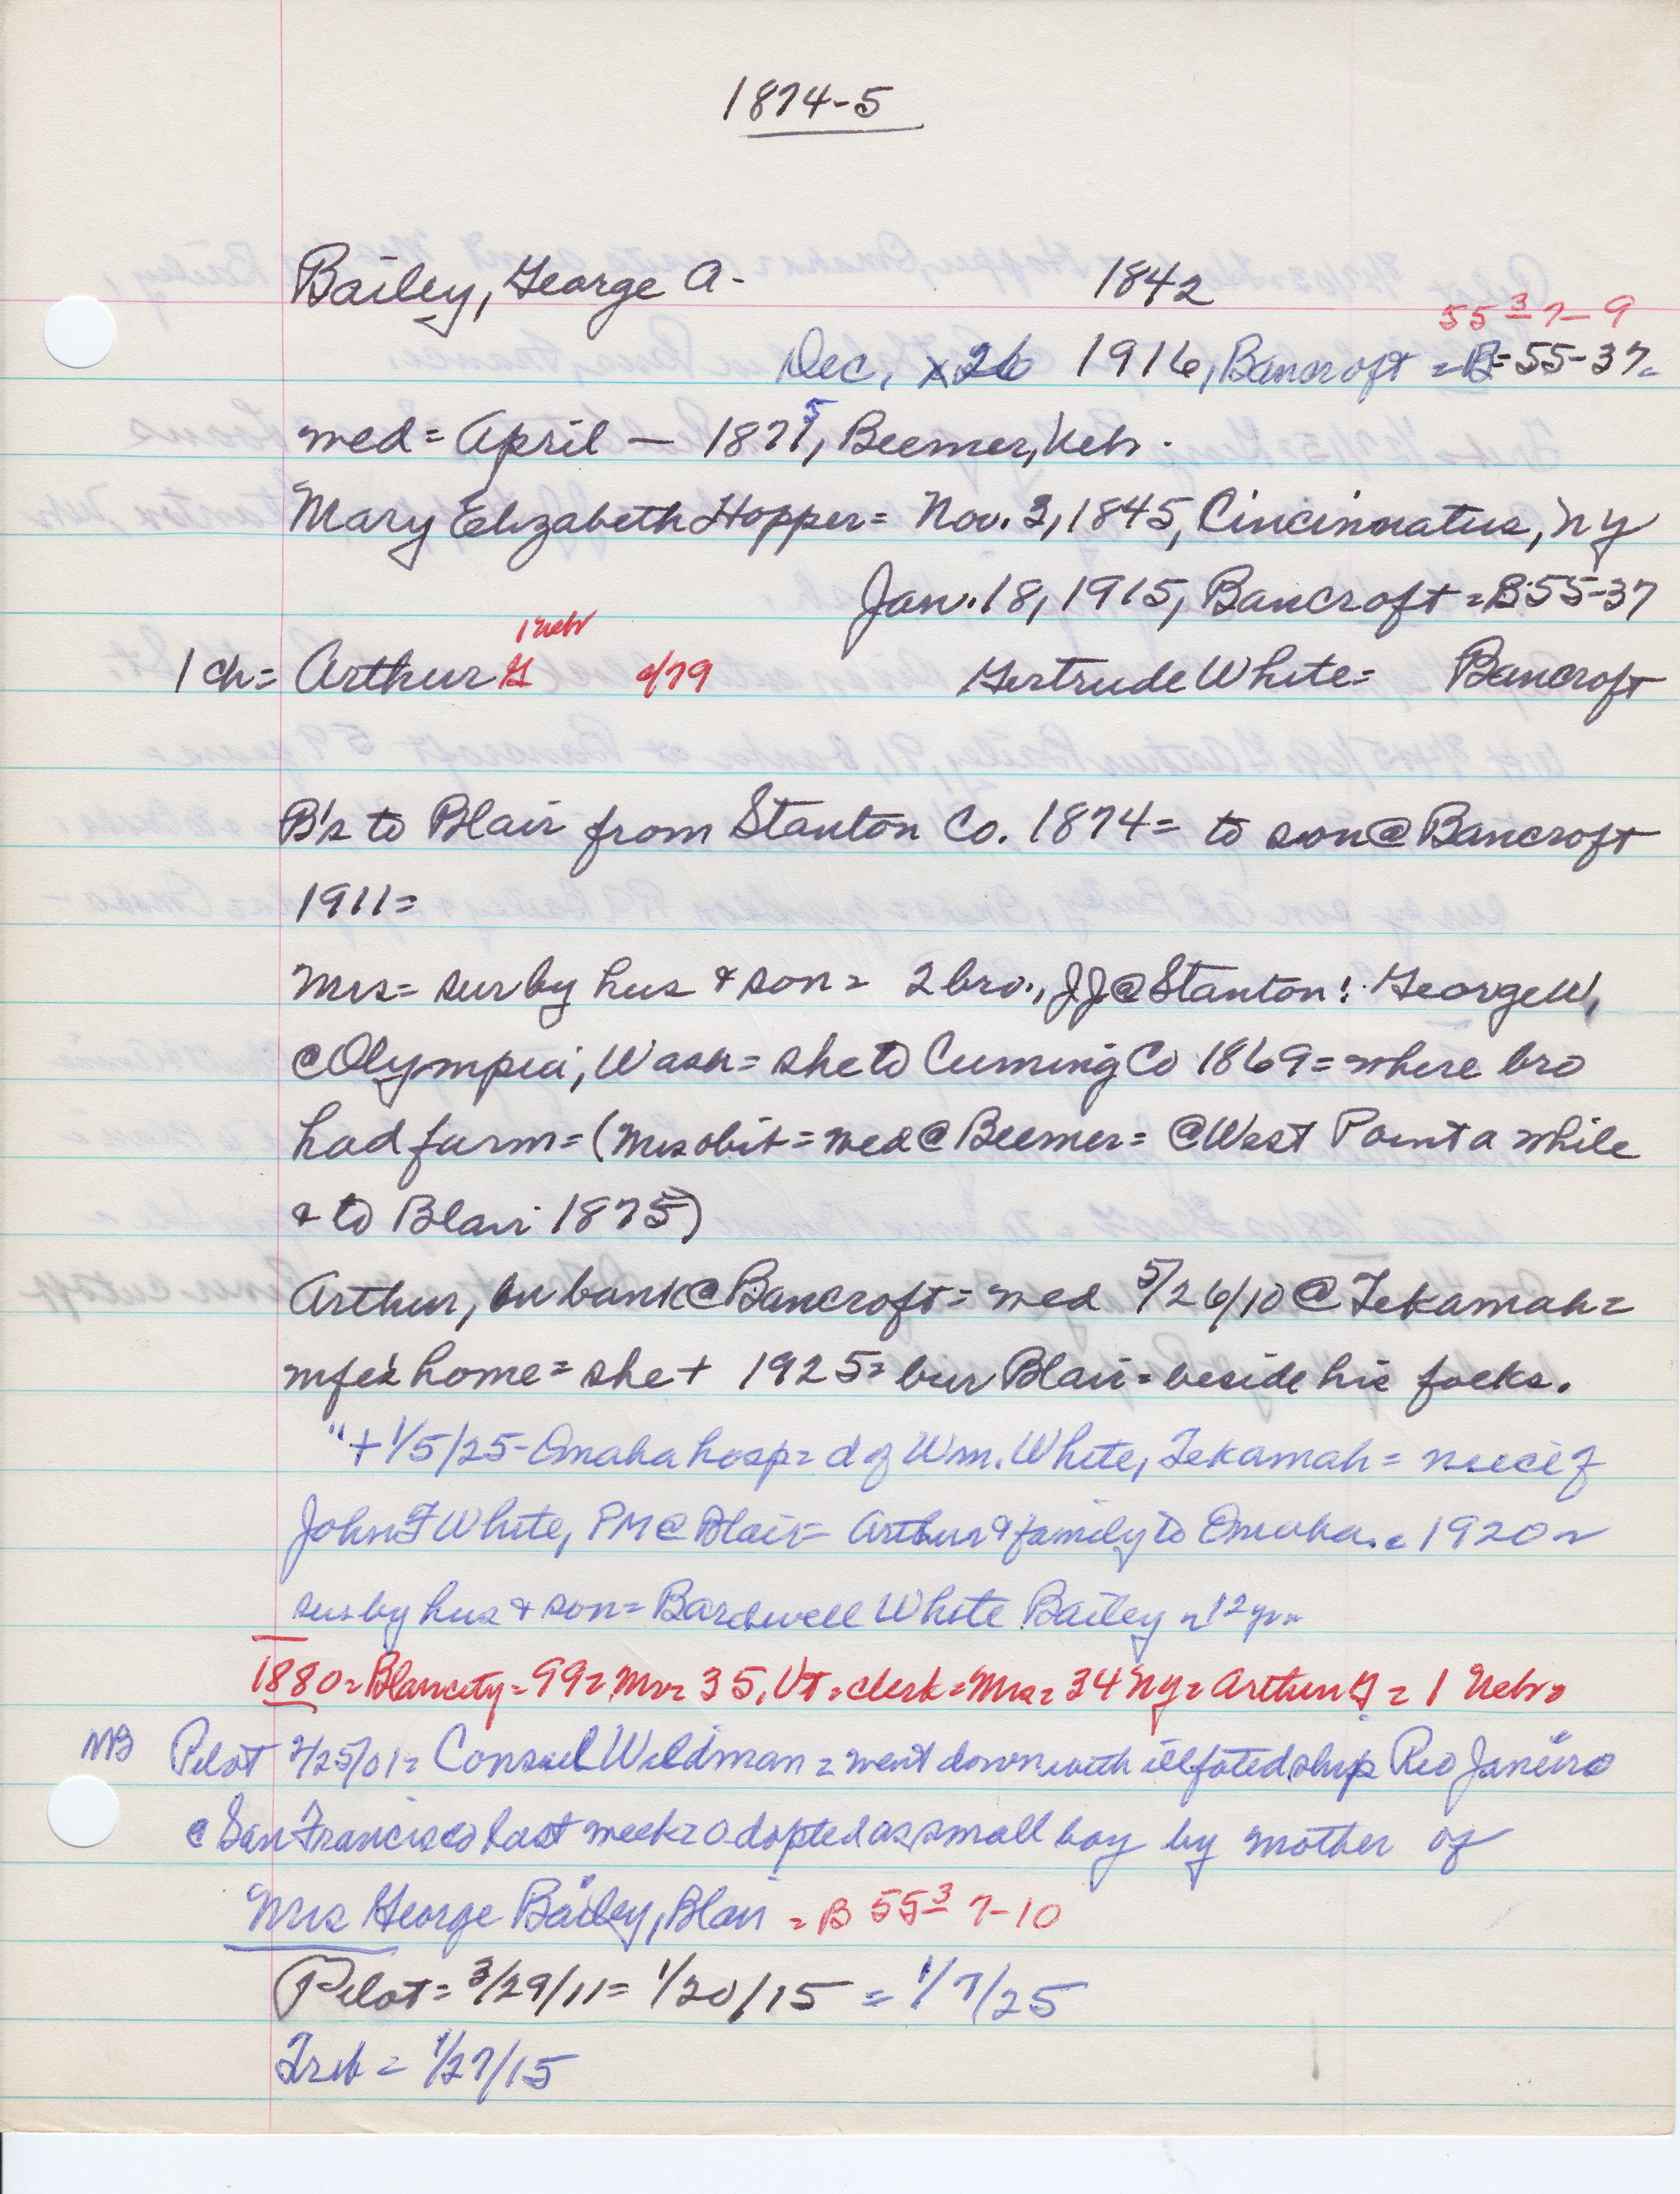 1874-5
Bailey, George A. 1842
55 3 7-9
Dec. x 26 1916, Bancroft = B=55-37.
med = April — 1877, Beemer, Neb.
5
Mary Elizabeth Hopper = Nov. 3, 1845, Cincinnatus, NY
Jan. 18, 1915, Bancroft = B 55-37
1 neb
1 ch = Arthur G c/79 Gertrude White = Bancroft
B's to Blair from Stanton Co. 1874 = to son @ Bancroft
1911 =
Mrs = sur by hus & son = 2 bro., JJ @ Stanton: George W,
@ Olympia, Wash = she to Cuming Co 1869 = where bro
had farm = (Mrs obit = med @ Beemer = @ West Point a while
& to Blair 1875)
Arthur, bank @ Bancroft = med 5/26/10 @ Tekamah =
wife's home = she + 1925 = bur Blair = beside his folks.
" + 1/5/25 - Omaha hosp = d of Wm. White, Tekamah = niece of
John F White, PM @ Blair = Arthur & family to Omaha. c 1920 =
sur by hus & son = Bardwell White Bailey = 12 yrs
1880 = Blair city = 99 = Mr = 35, VT = clerk = Mrs = 34 NY = Arthur G = 1 Neb =
NB Pilot 2/25/01 = Consul Wildman = went down with illfated ship Rio Janeiro
@ San Francisco last week = adopted as small boy by mother of
Mrs George Bailey, Blair = B 55 3 7-10
Pilot = 3/29/11 = 1/20/15 = 1/7/25
Trib = 1/27/15